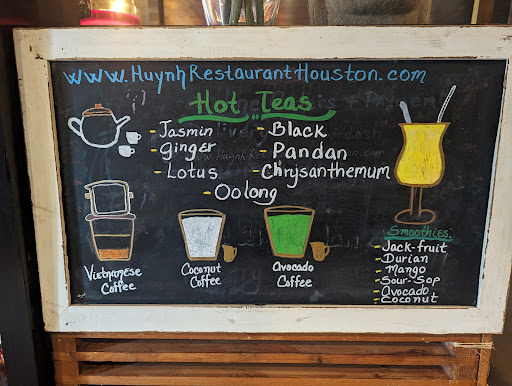 www.HuynhRestaurantHouston.com
Hot Teas
- Jasmin
- Ginger
- Lotus
- Black
- Pandan
- Chrysanthemum
- Oolong
Vietnamese
Coffee
Coconut
Coffee
Avocado
Coffee
Smoothies:
- Jack-fruit
- Durian
- Mango
- Sour-Sop
- Avocado
- Coconut